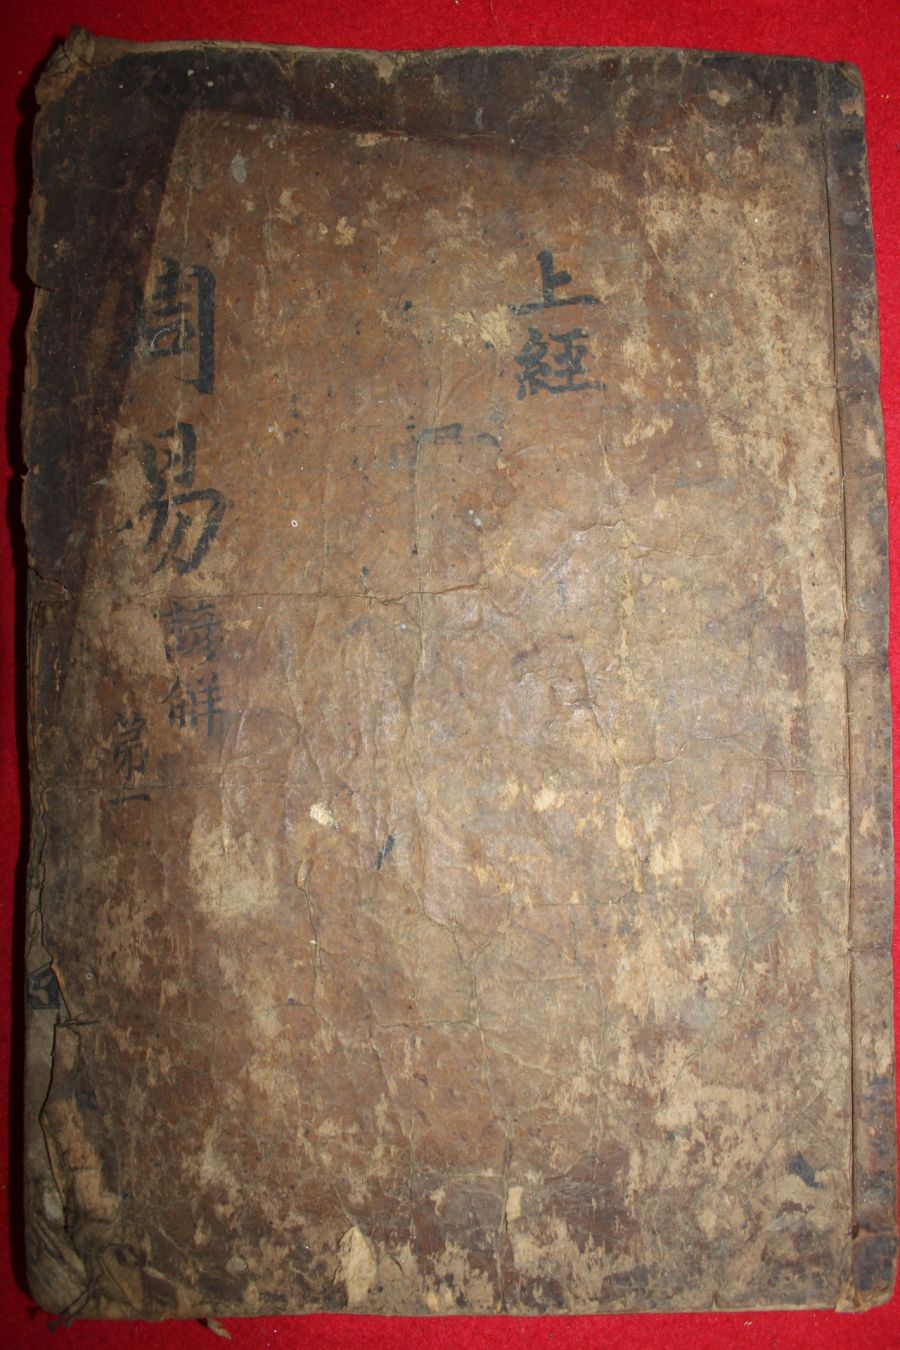 上經
周易
解
第一